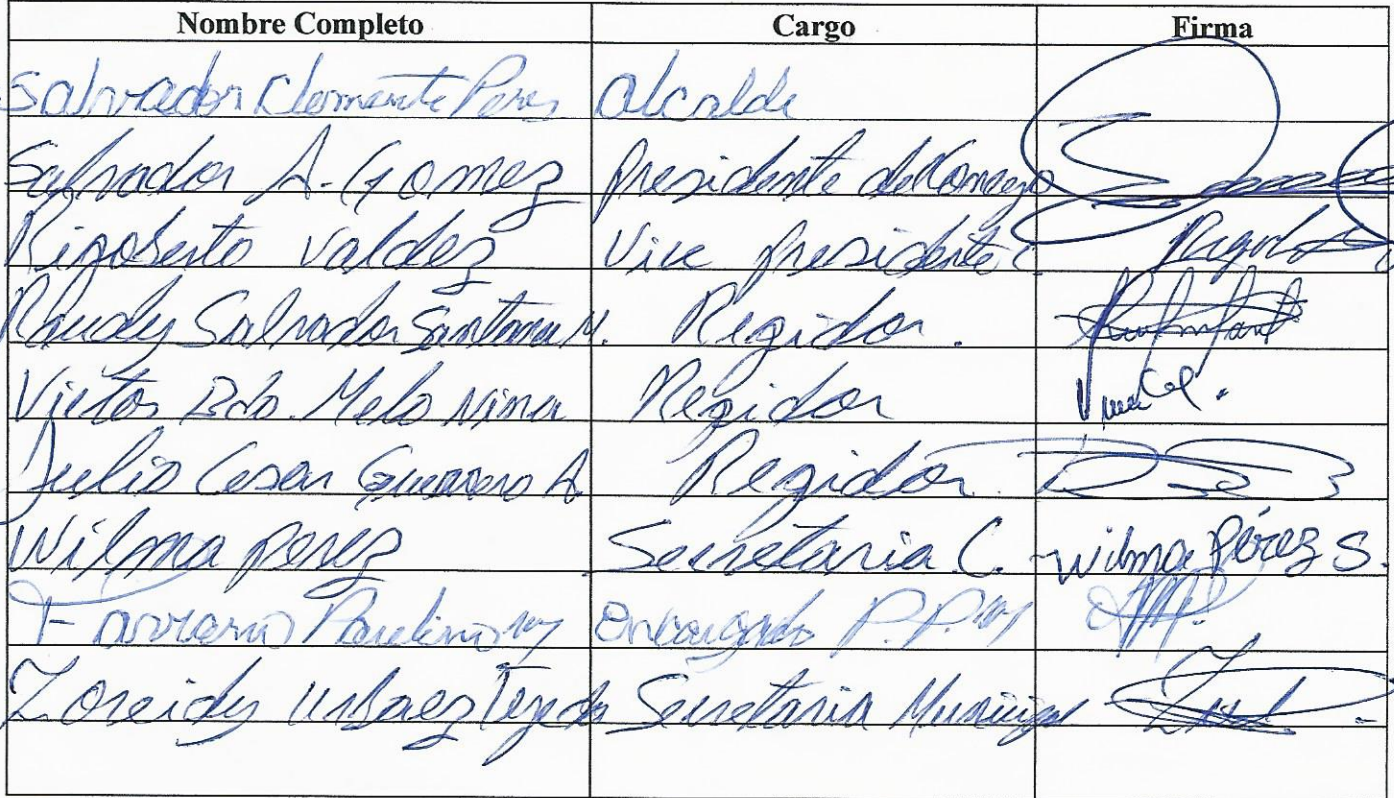 Nombre Completo Cargo Firma
Salvador Clemente Perez Alcalde
Salvador A. Gomez Presidente del Concejo
Rigoberto Valdez Vice presidente C.
Raudy Salvador Santana M. Regidor.
Victor Bdo. Melo Nina Regidor
Julio Cesar Guerrero A. Regidor
Wilma perez Secretaria C. Wilma Pérez S.
Paulino encargado P.P.M
Zoreidy Urbaez Tejeda Secretaria Municipal